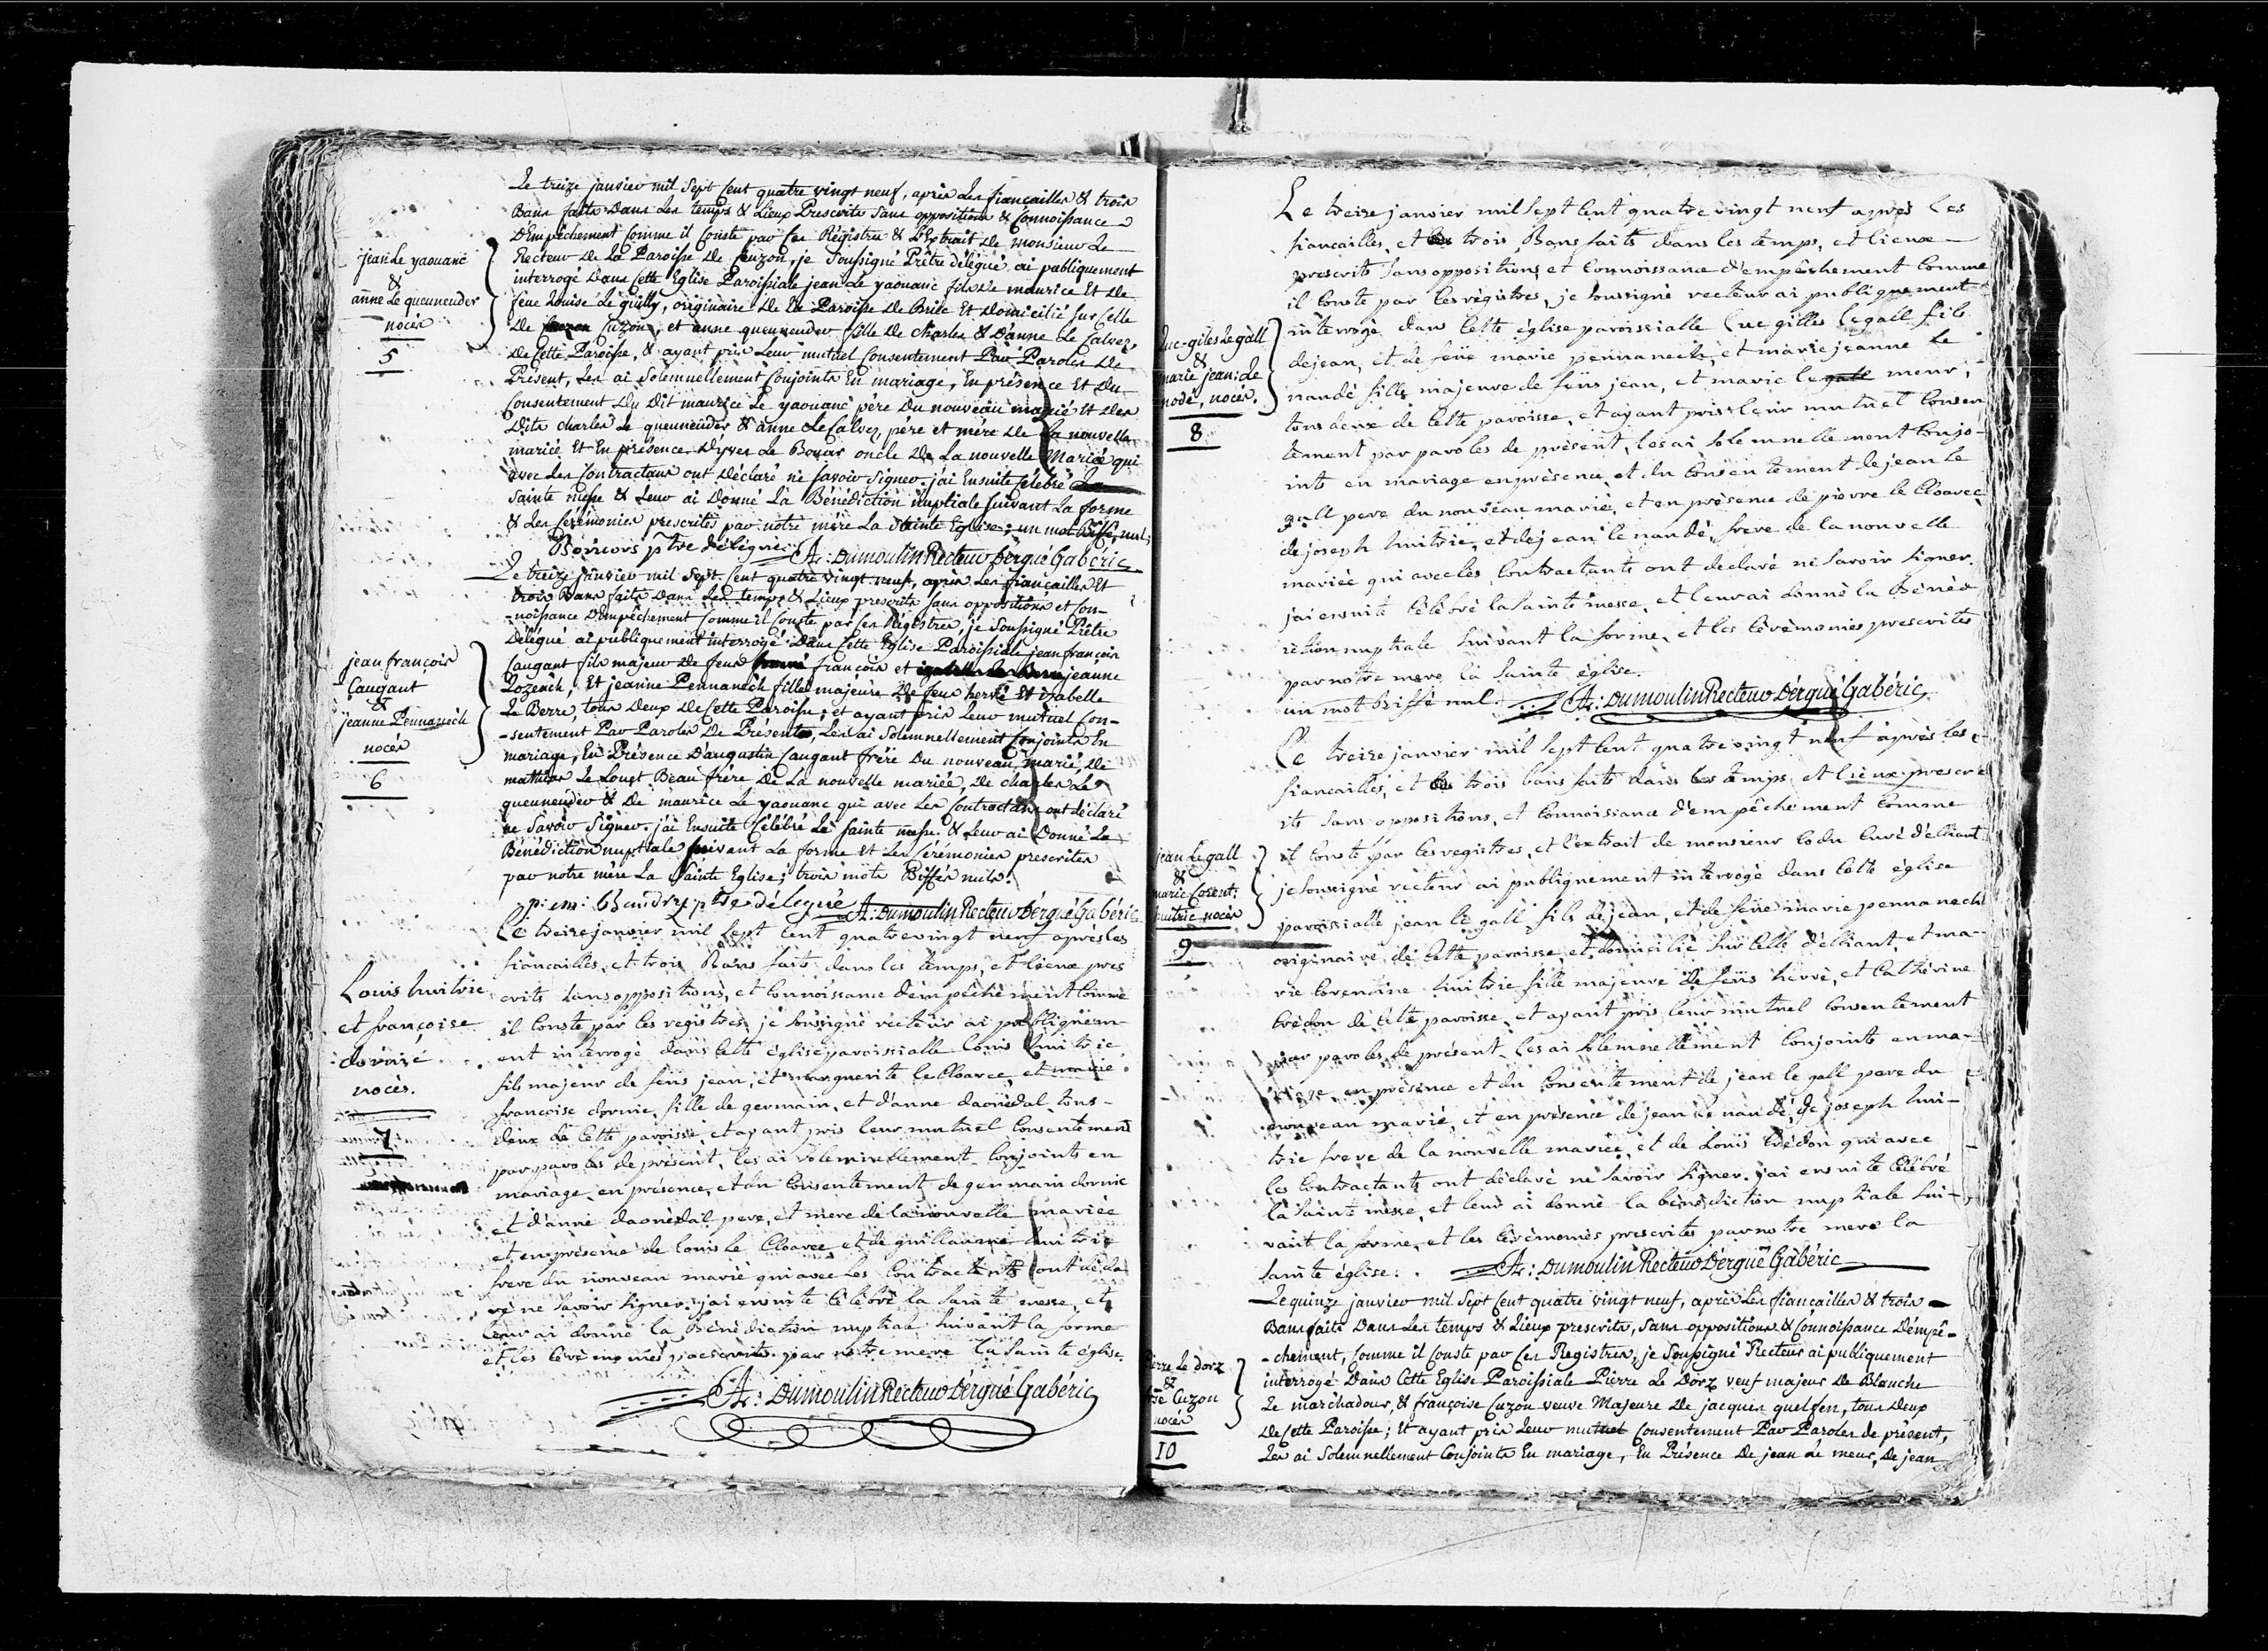 Le treize janvier mil Sept Cent quatre vingt neuf, après Les fiançailles & trois
Bans faits Dans Les temps & Lieux Prescrits Sans oppositions & Connoissance
D'Empêchement Comme il Conste par Ces Régistres & L'Extrait de monsieur Le
Recteur De La Paroisse De Cuzon, je Soussigné Prêtre délégué ai publiquement
interrogé Dans Cette Eglise Paroissiale jean Le yaouanc fils de maurice Et De
feue Louise Le guilly, originaire De La Paroisse De Briec Et Domicilié Sur Celle
De Cuzon, et anne queuneuder fille De Charles & D'anne Le Calvez
De Cette Paroisse, & ayant pris Leur mutuel Consentement Par Paroles De
Présent, Les ai Solemnellement Conjoints En mariage, En présence Et Du
Consentement Du Dit maurice Le yaouanc père Du nouveau marié Et Des
Dits charles Le queuneuder & anne Le Calvez, père et mère De La nouvelle
mariée Et En présence D'yves Le Bouar oncle De La nouvelle Mariée qui
avec Les Contractans ont Déclaré ne savoir Signer. j'ai Ensuite Célébré La
Sainte messe & Leur ai Donné La Bénédiction nuptiale Suivant La forme
& Les Cérémonies prescrites par notre mère La Sainte Eglise; un mot Biffé, nul;
ptre délégué A: Dumoulin Recteur Dergué Gabéric
jean Le yaouanc
&
anne Le queuneuder
noces
5
Le treize janvier mil Sept Cent quatre vingt neuf, après Les fiançailles Et
trois Bans faits Dans Les temps & Lieux prescrits Sans oppositions et Con-
-noissance D'Empêchement Comme il Conste par Ces Régistres, je Soussigné Prêtre
Délégué ai publiquement interrogé Dans Cette Eglise Paroissiale jean françois
Caugant fils majeur De feus françois et jeanne
Lozeach, Et jeanne Pennanech fille majeure De feus hervé Et izabelle
Le Berre, tous Deux De Cette Paroisse; et ayant pris Leur mutuel Con-
-sentement Par Paroles De Présent, Les ai Solemnellement Conjoints En
mariage, En Présence D'augustin Caugant frère Du nouveau marié De
mathias Le Louet Beau frère De La nouvelle mariée, De charles Le
queuneuder & De maurice Le yaouanc qui avec Les Contractans ont déclaré
ne Savoir Signer. j'ai Ensuite Célébré La Sainte messe & Leur ai Donné La
Bénédiction nuptiale Suivant La forme Et Les Cérémonies prescrites
par notre mère La Sainte Eglise; trois mots Biffés nuls.
ptre délégué A: Dumoulin Recteur Dergué Gabéric
jean françois
Caugant
&
jeanne Pennanech
noces
6
Le treize janvier mil Sept Cent quatre vingt neuf après les
fiançailles, et trois Bans faits dans les temps, et lieux pres
crits sans oppositions, et Connoissance d'empêchement Comme
il Conste par les registres je soussigné recteur ai publiquem-
ent interrogé dans Cette église paroissialle Louis huitric
fils majeur de feus jean, et marguerite le Cloarec, et marie
françoise dornic, fille de germain, et d'anne daonédal tous-
deux de Cette paroisse, et ayant pris leur mutuel Consentment
par paroles de présent, les ai solemnellement Conjoints en
mariage, en présence, et du Consentement de germain dornic
et d'anne daonédal pere, et mere de la nouvelle mariée
et en présence de louis le Cloarec, et de guillaume huitric
frere du nouveau marié qui avec les Contractants ont décla
ré ne savoir signer. j'ai ensuite Célébré la sainte messe, et
leur ai donné la Bénédiction nuptiale suivant la forme
et les cérémonies prescrites par notre mere la sainte église.
A: Dumoulin Recteur Dergué Gabéric
Louis huitric
et françoise
noces.
7
Le treize janvier mil sept Cent quatre vingt neuf après les
fiançailles, et trois Bans faits dans les temps, et lieux
prescrits sans oppositions et Connoissance d'empêchement Comme
il Conste par les régistres, je soussigné recteur ai publiquement
interrogé dans Cette église paroissialle luc gilles le gall fils
de jean, et de feüe marie pennanech, et marie jeanne le
nandé fille majeure de feüs jean, et marie le gall meur,
tous deux de Cette paroisse, et ayant pris leur mutuel Consen
tement par paroles de présent, les ai solemnellement Conjo-
ints en mariage en présence, et du Consentement de jean le
gall pere du nouveau marié, et en présence de pierre le Cloarec
de joseph huitric, et de jean le nandé, frere de la nouvelle
mariée qui avec les Contractants ont déclaré ne savoir signer.
j'ai ensuite Célébré la sainte messe, et leur ai donné la Bénéd
iction nuptiale suivant la forme, et les Cérémonies prescrites
par notre mere la sainte église.
un mot biffé nul. A: Dumoulin Recteur Dergué Gabéric
Luc-giles Le gall
&
marie jean: Le
node, noces.
8
Le treize janvier mil sept Cent quatre vingt neuf après les
fiançailles, et trois bans faits dans les temps et lieux prescr
its sans oppositions, et Connoissance d'empêchement Comme
il Conste par les registres, et l'extrait de monsieur Curé d'elliant
je soussigné recteur ai publiquement interrogé dans Cette église
paroissialle jean le gall fils de jean, et de feüe marie pennanech
originaire de Cette paroisse, et domicilié sur Celle d'elliant, et ma-
rie Corentine huitric fille majeure de feüs hervé, et Cathérine
Crédou de Cette paroisse, et ayant pris leur mutuel Consentement
par paroles de présent, les ai solemnellement Conjoints en ma-
riage en présence et du Consentement de jean le gall pere du
nouveau marié, et en présence de jean le nandé, de joseph hui-
tric frere de la nouvelle mariée, et de Louis Crédou qui avec
les Contractants ont déclaré ne savoir signer. j'ai ensuite Célébré
la sainte messe, et leur ai donné la bénédiction nuptiale sui-
vant la forme, et les Cérémonies prescrites par notre mere la
sainte église. A: Dumoulin Recteur Dergué Gabéric
jean Le gall
&
marie Corent:
huitric noces
9
Le quinze janvier mil Sept Cent quatre vingt neuf, après Les fiançailles & trois
Bans faits Dans Les temps & Lieux prescrits, Sans oppositions & Connoissance D'empê-
-chement, Comme il Conste par Ces Registres, je Soussigné Recteur ai publiquement
interrogé Dans Cette Eglise Paroissiale Pierre Le Dorz veuf majeur De Blanche
Le marchadour, & françoise Cuzon veuve Majeure De jacques quelfen, tous Deux
De Cette Paroisse; Et ayant pris Leur mutuel Consentement Par Paroles de présent,
Les ai Solemnellement Conjoints En mariage, En Présence De jean Le meur, De jean
Le Dorz
&
Cuzon
noces
10